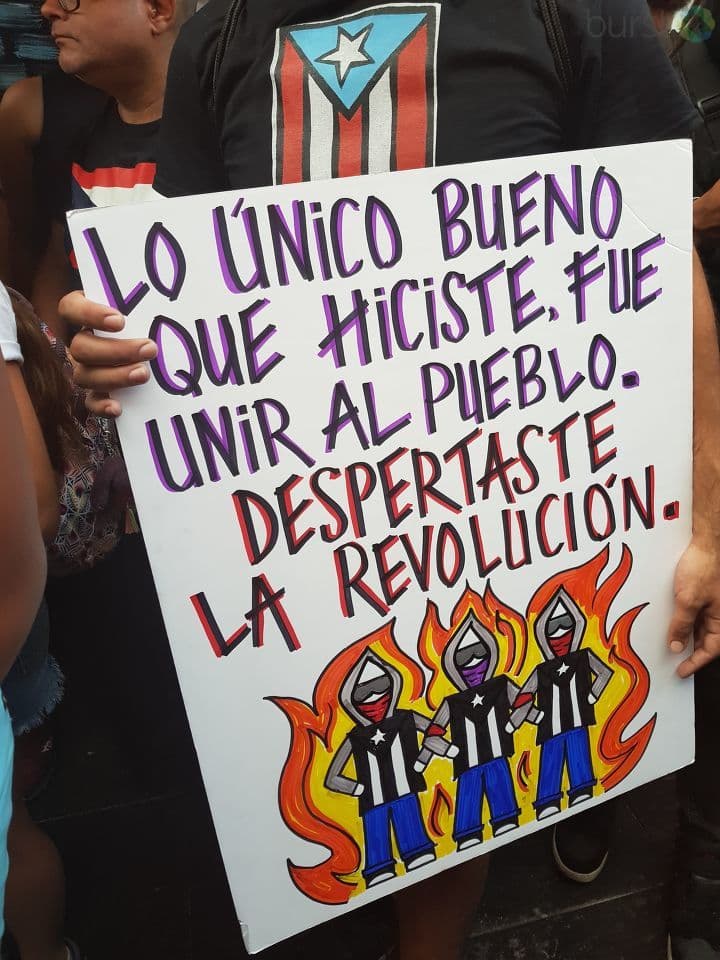 LO ÚNICO BUENO
QUE HICISTE, FUE
UNIR AL PUEBLO.
DESPERTASTE
LA REVOLUCIÓN.